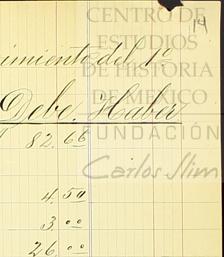 CENTRO DE
ESTUDIOS
DE HISTORIA
DE MÉXICO
FUNDACIÓN
Carlos Slim
14
imiento del 1º
Debe, Haber
82.68
4.50
3.ºº
26.ºº